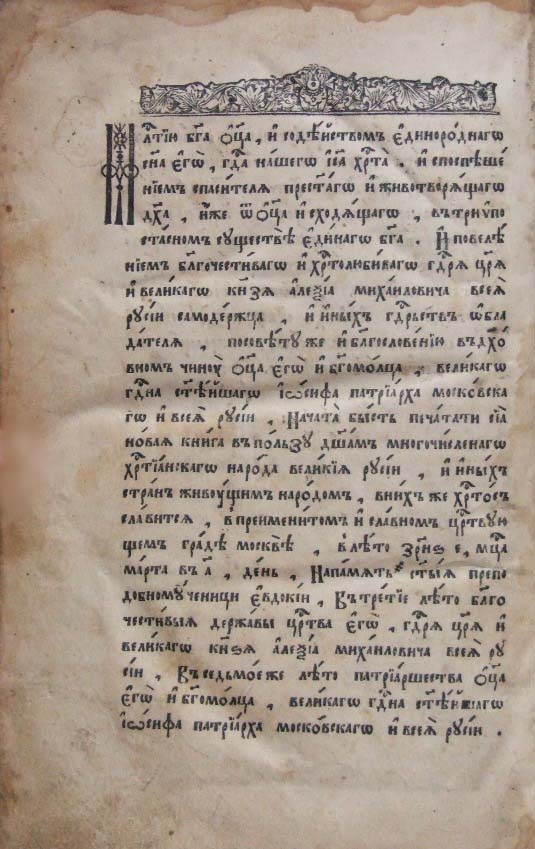 Млⷭ҇тїю бг҃а ѻ҆ц҃а, и҆ содѣ́йствомъ є҆диноро́днагѡ
сн҃а є҆гѡ̀, гдⷭ҇а на́шего і҆сⷭ҇а хрⷭ҇та̀. и҆ споспѣше́
нїемъ спаси́телѧ прест҃а́гѡ и҆ животворѧ́щагѡ
дх҃а, и҆́же ѿ ѻ҆ц҃а и҆сходѧ́щагѡ, въ трїѵпо
ста́сномъ существѣ̀ є҆ди́нагѡ бг҃а. И҆ повелѣ́
нїемъ благочести́вагѡ и҆ хрⷭ҇толюби́вагѡ гдⷭ҇рѧ цр҃ѧ̀
и҆ вели́кагѡ кнѧ́зѧ а҆леѯі́а миха́иловича всеѧ̀
рꙋсі́и самоде́ржца, и҆ и҆ны́хъ гдⷭ҇рьствъ ѡ҆бла
да́телѧ, посовѣ́тꙋ же и҆ бл҃гослове́нїю въ дх҃о́
вномъ чи́нꙋ ѻ҆ц҃а̀ є҆гѡ̀ и҆ бг҃омо́лца, вели́кагѡ
гдⷭ҇на ст҃ѣ́йшагѡ і҆ѡ́сифа патрїа́рха моско́вска
гѡ и҆ всеѧ̀ рꙋсі́и, Нача́та бы́сть печа́тати сїѧ̀
но́ваѧ кни́га въ по́льзꙋ дш҃а́мъ многочи́сленагѡ
хрⷭ҇тїа́нскагѡ наро́да вели́кїѧ рꙋсі́и, и҆ и҆ны́хъ
стра́нъ живꙋ́щимъ наро́домъ, вни́хъ же хрⷭ҇то́съ
сла́витсѧ, в преимени́томъ и҆ сла́вномъ црⷭ҇твꙋю
щемъ гра́дѣ москвѣ̀, в лѣ́то мцⷭ҇а
ма́рта въ а҃, де́нь, На па́мѧть ст҃ы́ѧ препо
добномꙋ́ченици є҆вдокі́и, Въ тре́тїе лѣ́то благо
чести́выѧ держа́вы црⷭ҇тва є҆гѡ̀, гдⷭ҇рѧ цр҃ѧ̀ и҆
вели́кагѡ кнѧ́ѕѧ а҆леѯі́а миха́иловича всеѧ̀ рꙋ
сі́и, Въ седьмо́е же лѣ́то патрїа́ршества ѻ҆ц҃а̀
є҆гѡ̀ и҆ бг҃омо́лца, вели́кагѡ гдⷭ҇на ст҃ѣ́йшагѡ
і҆ѡ́сифа патрїа́рха моско́вскагѡ и҆ всеѧ̀ рꙋсі́и.